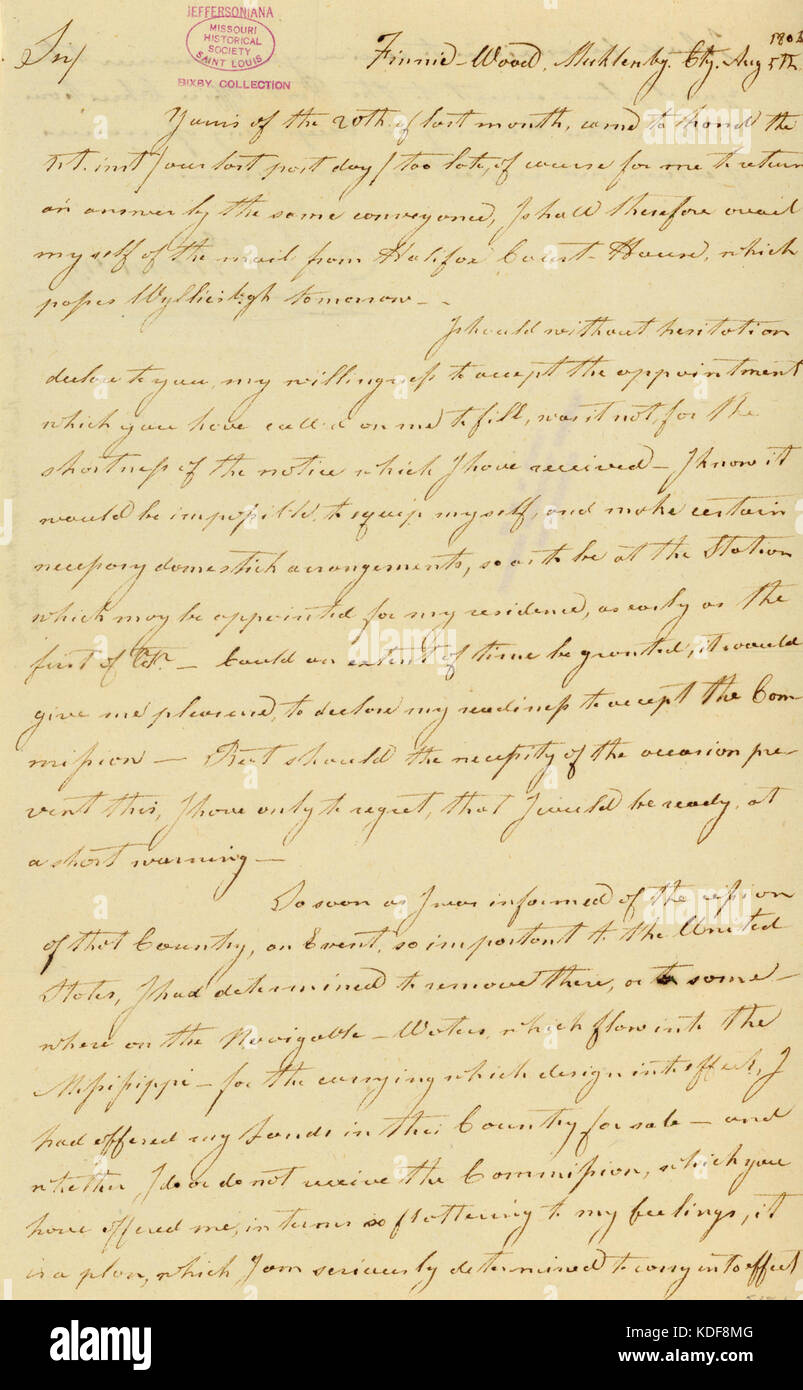 JEFFERSONIANA
MISSOURI
HISTORICAL
SOCIETY
SAINT LOUIS
BIXBY COLLECTION
Sir/
Finnie-Wood, Mecklenbg. Cty. Aug 5th.
Yours of the 20th of last month, came to hand the
1st. inst / our last post day / too late, of course for me to return
an answer by the same conveyance, I shall therefore avail
myself of the mail from Halifax Court-House, which
passes Wylliesbgh tomorrow--
I should without hesitation
declare to you, my willingness to accept the appointment
which you have call'd on me to fill, was it not, for the
shortness of the notice which I have received — I know it
would be impossible, to equip myself, and make certain
necessary domestick arrangements, so as to be at the Station
which may be appointed for my residence, as early as the
first of Octr. — Could an extent of time be granted, it would
give me pleasure, to declare my readiness to accept the Com-
mission — But should the necessity of the occasion pre-
vent this, I have only to regret, that I could be ready, at
a short warning —
So soon as I was informed of the cession
of that Country, an Event, so important to the United
States, I had determined to remove there, or to some-
where on the Navigable-Waters, which flow into the
Missisippi — for the carrying which design into effect, I
had offered my Lands in this Country for sale — and
whether I do or do not receive the Commission, which you
have offered me, in terms so flattering to my feelings, it
is a plan, which I am seriously determined to carry into effect
alamy
Image ID: KDF8MG
www.alamy.com